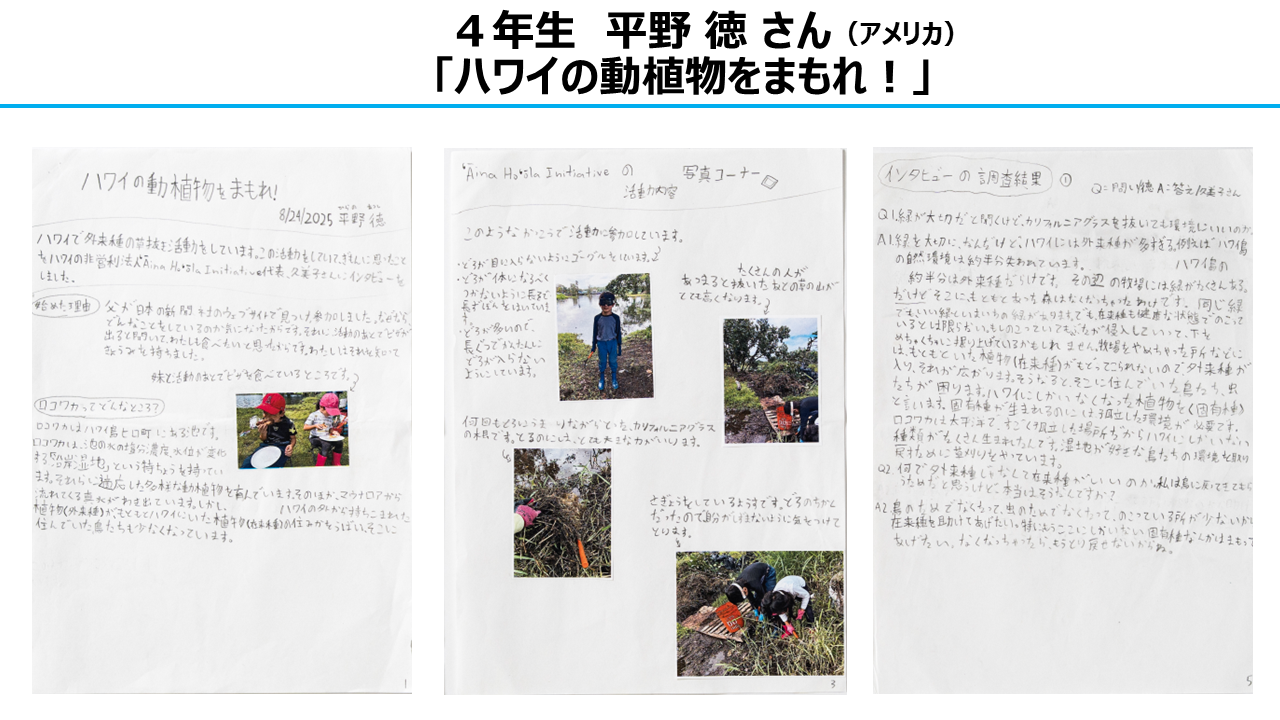 ４年生 平野 徳 さん（アメリカ）
「ハワイの動植物をまもれ！」
ハワイの動植物をまもれ!
8/24/2025 平野 徳
ハワイで外来種の草抜き活動をしています。この活動をしていて、ぎもんに思ったこと
をハワイの非営利法人'Āina Hoʻōla Initiative代表、久美子さんにインタビューを
しました。
始めた理由
父が日本の新聞社のウェブサイトで見つけ参加しました。なぜなら、
どんなことをしているのか気になったからです。それに、活動のあとでピザが
出ると聞いて、わたしも食べたいと思ったからです。わたしはそれを知って
きょうみを持ちました。
妹と活動のあとでピザを食べているところです。
ロコワカってどんなところ?
ロコワカはハワイ島ヒロ町にある池です。
ロコワカは、池の水の塩分濃度、水位が変化
する「沿岸湿地」という特ちょうを持ってい
ます。それらに適応した多様な動植物を育んでいます。そのほか、マウナロアから
流れてくる真水がわき出ています。しかし、
ハワイの外から持ちこまれた
植物(外来種)がもともとハワイにいた植物(在来種)の住みかをうばい、そこに
住んでいた鳥たちも少なくなっています。
1
'Āina Hoʻōla Initiative の
活動内容
写真コーナー
このようなかっこうで活動に参加しています。
・どろが目に入らないようにゴーグルをしています。
・どろが体になるべく
つかないように長そで
長ずぼんをはいていま
す。
・どろが多いので、
長ぐつでかんたんに
どろが入らない
ようにしています。
たくさんの人が
あつまると抜いたあとの草の山が
とても高くなります。
何回もどろにうまりながらとった、カリフォルニアグラス
の根です。とるのにはとても大きな力がいります。
さぎょうをしているようすです。どろのちかく
だったので自分がしずまないように気をつけて
とります。
3
インタビューの調査結果 ①
Q=問い/徳 A=答え/久美子さん
Q1.緑が大切だと聞くけど、カリフォルニアグラスを抜いても環境にいいのか。
A1.緑を大切に、なんだけど、ハワイには外来種が多すぎる。例えばハワイ島
の自然環境は約半分失われています。
ハワイ島の
約半分は外来種だらけです。その辺の牧場には緑がたくさんある。
だけどそこにもともとあった森はなくなっちゃったわけです。同じ緑
でもいい緑とじゃまものの緑があります。でも、在来種も健康な状態でのこって
いるとは限らない。
めちゃくちゃに掘り上げているかもしれません。牧場をやめちゃった所などに
は、もともといた植物(在来種)がもどってこられないので外来種が
入り、それが広がります。そうなるとそこに住んでいた鳥たち、虫
たちが困ります。ハワイにしかいなくなった植物をく(固有種)
と言います。固有種が生まれるのには孤立した環境が必要です。
ロコワカは太平洋で、すごく孤立した場所だからハワイにしかいない
種類がたくさん生まれたんです。湿地が好きな鳥たちの環境を取り
戻すために草刈りをやっています。
Q2.何で外来種じゃなくて在来種がいいのか、私は鳥に戻ってきてもら
うためだと思うけど、本当はそうなんですか?
A2.鳥のためでなくって、虫のためでなくって、のこっている所が少ないから
在来種を助けてあげたい。特にもうここにしかいない固有種なんかはまもって
あげたい。なくなっちゃったら、もうとり戻せないからね。
5